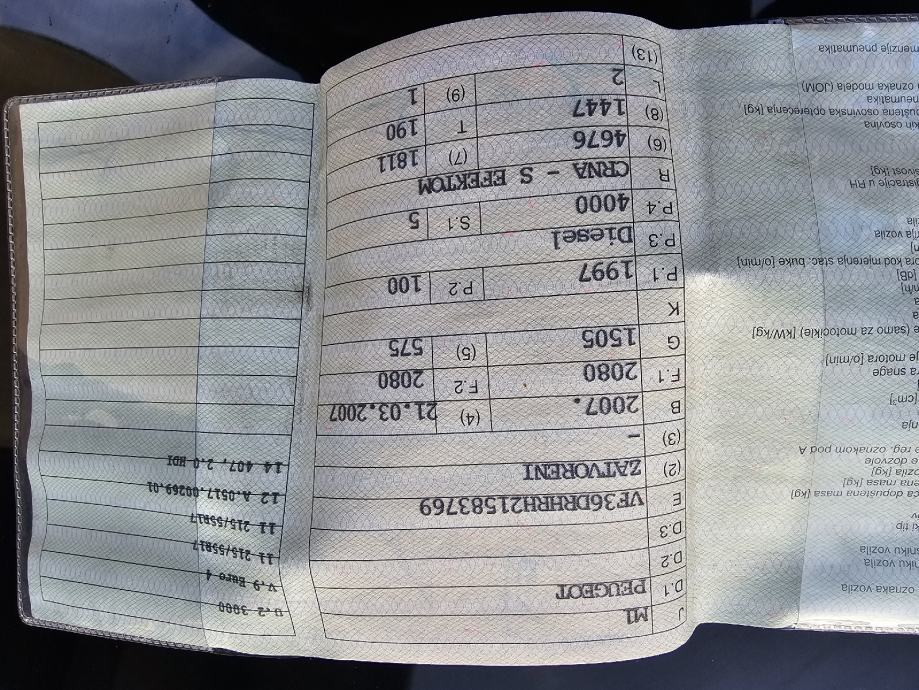 J M1
D.1 PEUGEOT
D.2
D.3
E VF36DRHRH21583769
(2) ZATVORENI
(3) -
B 2007. (4) 21.03.2007
F.1 2080 F.2 2080
G 1505 (5) 575
K
P.1 1997 P.2 100
P.3 Diesel
P.4 4000 S.1 5
R CRNA - S EFEKTOM
(6) 4676 (7) 1811
(8) 1447 T 190
L 2 (9) 1
(13)
3000
V.9 Euro 4
11 215/55R17
11 215/55R17
12 A.0517.00269.01
14 407, 2.0 HDI
oznaka vozila
niku vozila
sniku vozila
ki tip
dopuštena masa [kg]
masa [kg]
vozila [kg]
dozvole
reg. oznakom pod A
[cm³]
snage
motora [o/min]
(samo za motocikle) [kW/kg]
[dB]
kod mjerenja stac. buke [o/min]
vozila
u RH
[kg]
osovina
osovinska opterećenja [kg]
pneumatika
oznaka modela (JOM)
pneumatika